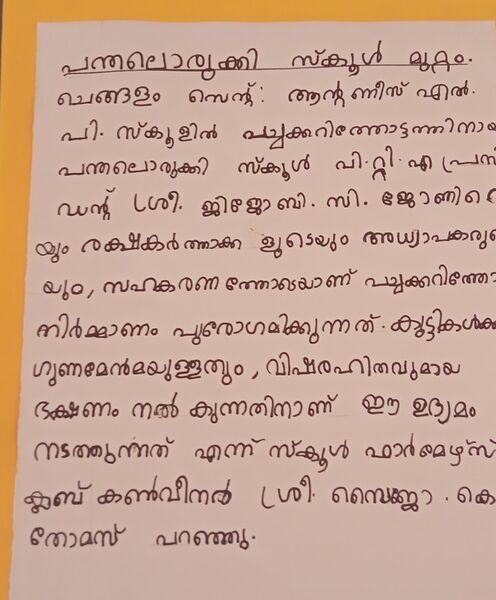 പന്തലൊരുക്കി സ്കൂൾ മുറ്റം.
ചെങ്ങളം സെന്റ്: ആന്റണീസ് എൽ.
പി. സ്കൂളിൽ പച്ചക്കറിത്തോട്ടത്തിനായ
പന്തലൊരുക്കി സ്കൂൾ പി.റ്റി.എ പ്രസി
ഡന്റ് ശ്രീ. ജിജോബി. സി. ജോണിന്റെ
യും രക്ഷകർത്താക്ക ളുടെയും അധ്യാപകരുടെ
യും, സഹകരണ ത്തോടെയാണ് പച്ചക്കറിത്തോ
നിർമ്മാണം പുരോഗമിക്കുന്നത്. കുട്ടികൾക്ക
ഗുണമേൻമയുള്ളതും, വിഷരഹിതവുമായ
ഭക്ഷണം നൽ കുന്നതിനാണ് ഈ ഉദ്യമം
നടത്തുന്നത് എന്ന് സ്കൂൾ ഫാർമേഴ്സ്
ക്ലബ് കൺവീനർ ശ്രീ. സൈജോ. കെ
തോമസ് പറഞ്ഞു.